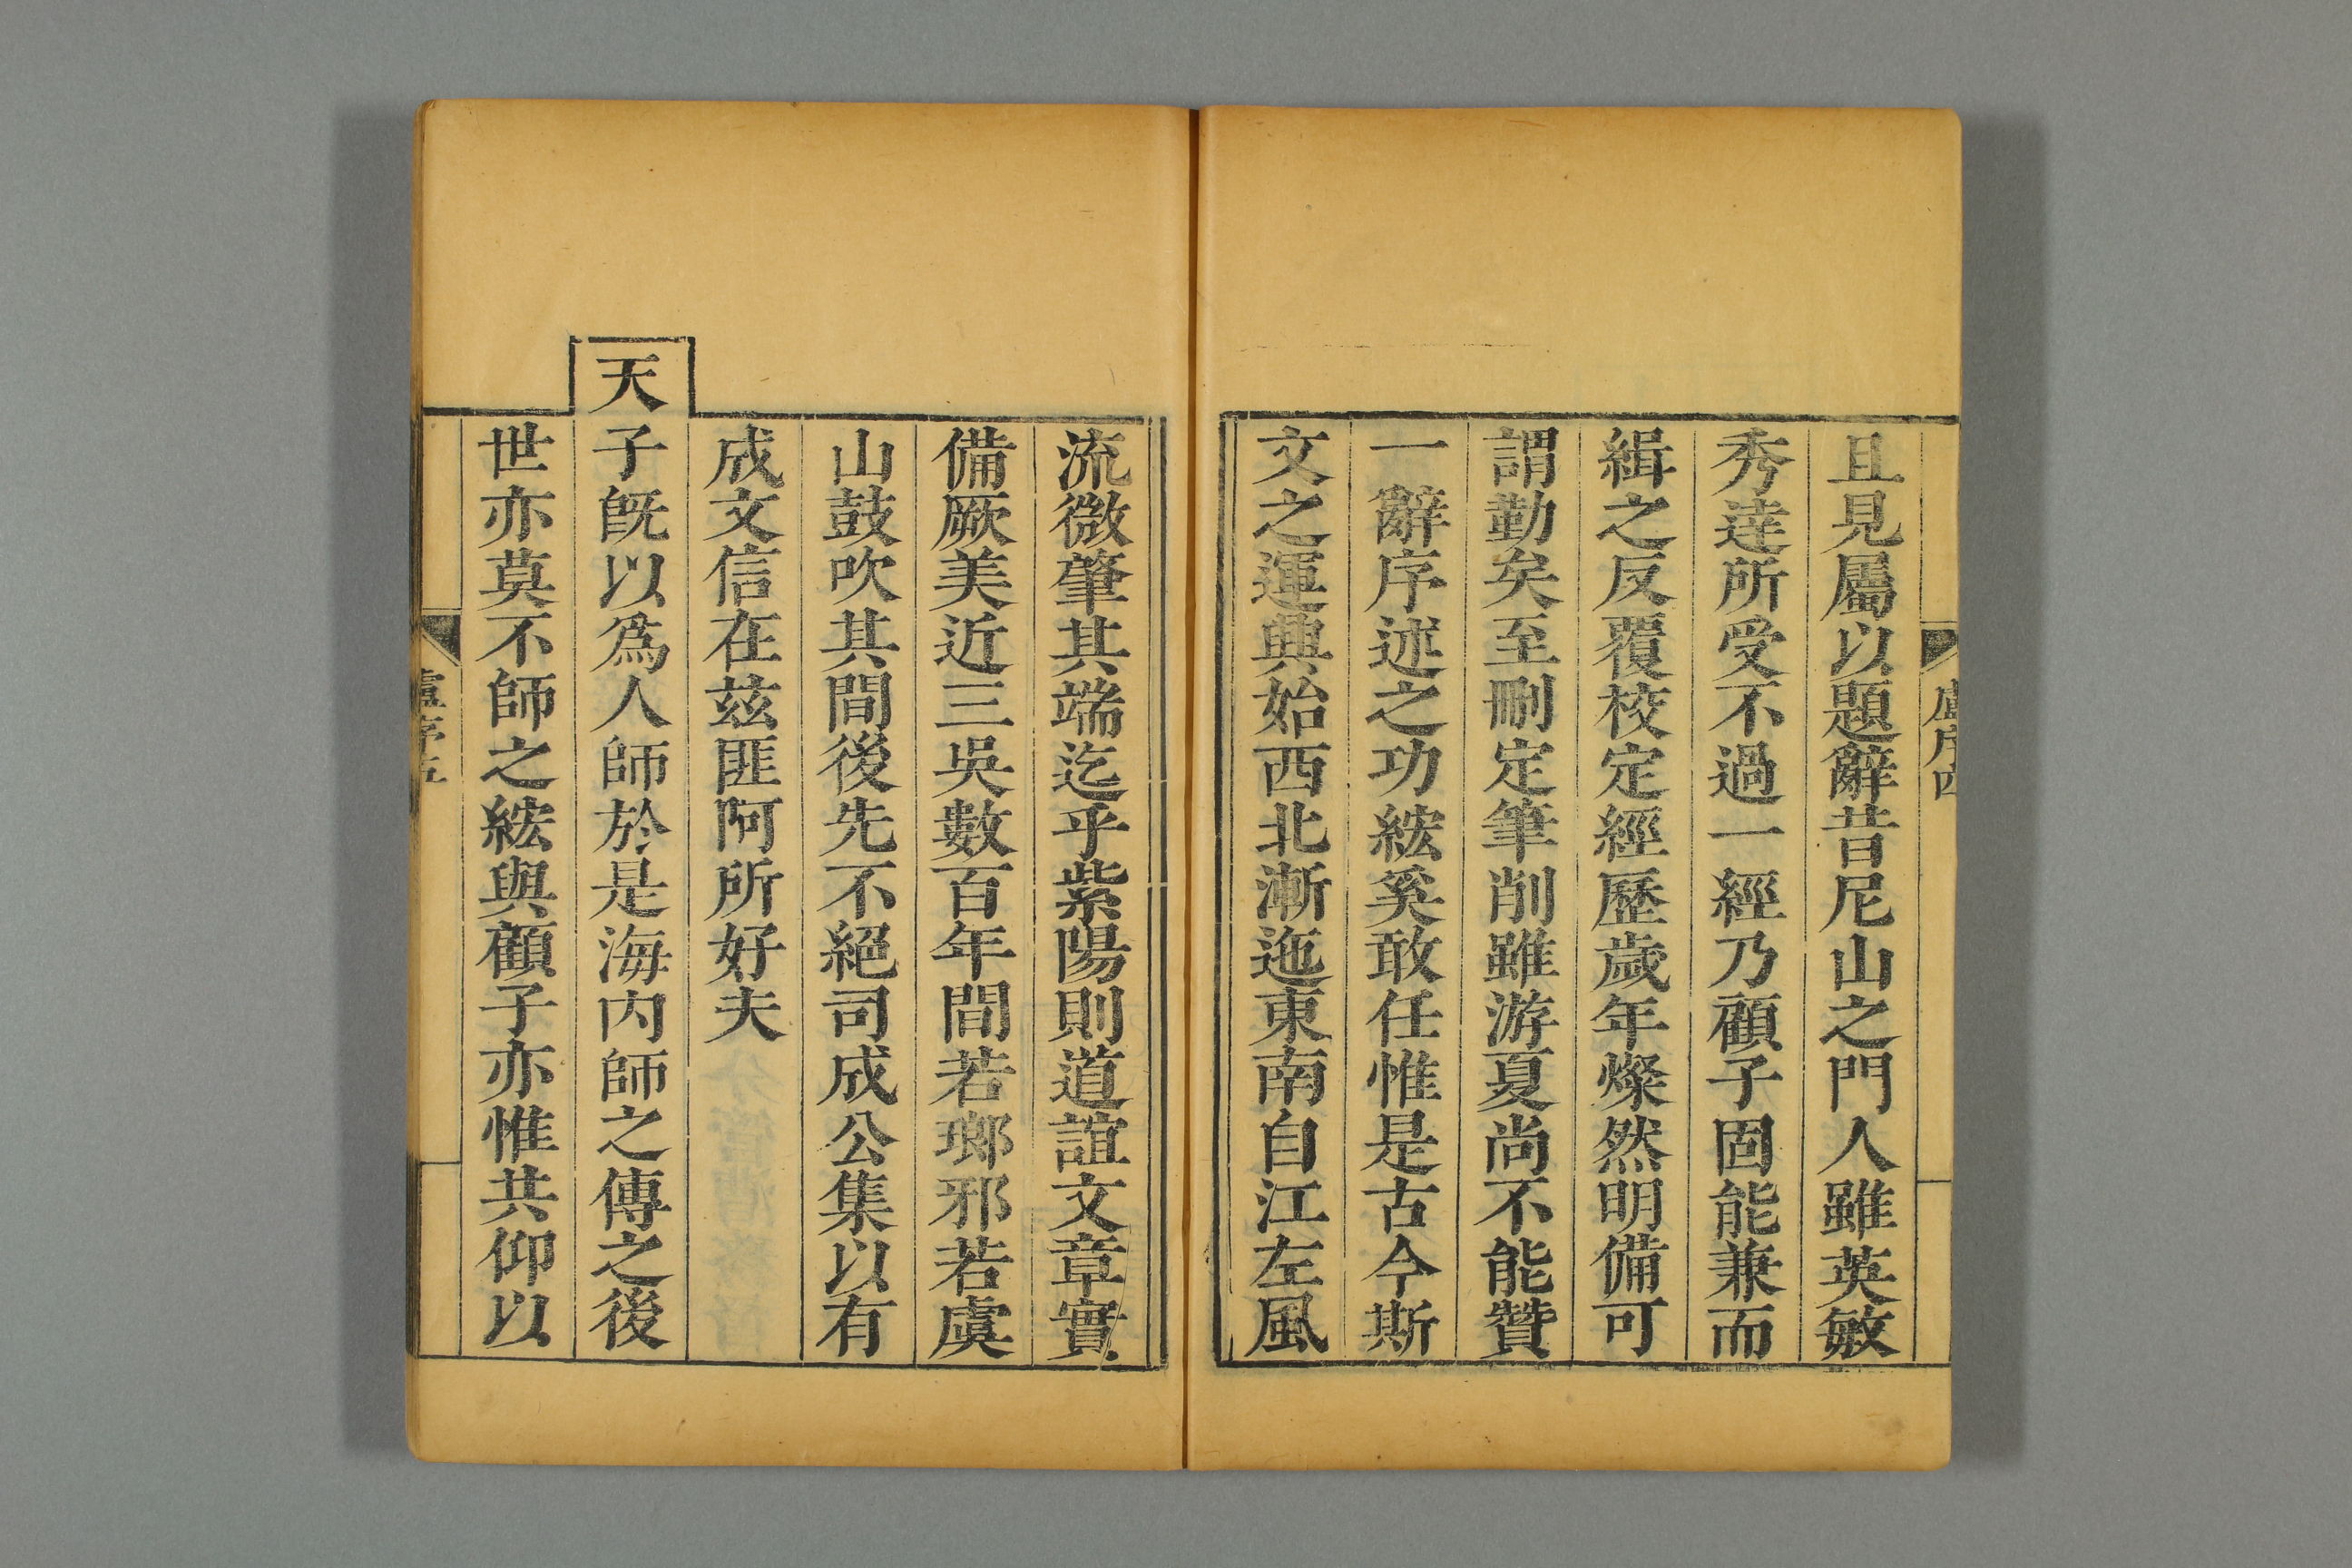 盧序四
且見屬以題辭昔尼山之門人雖英敏
秀達所受不過一經乃顧子固能兼而
緝之反覆校定經歷歲年燦然明備可
謂勤矣至刪定筆削雖游夏尚不能贊
一辭序述之功綋奚敢任惟是古今斯
文之運興始西北漸迤東南自江左風
流微肇其端迄乎紫陽則道誼文章實
備厥美近三吳數百年間若瑯邪若虞
山鼓吹其間後先不絕司成公集以有
成文信在茲匪阿所好夫
天子旣以為人師於是海内師之傳之後
世亦莫不師之綋與顧子亦惟共仰以
盧序五